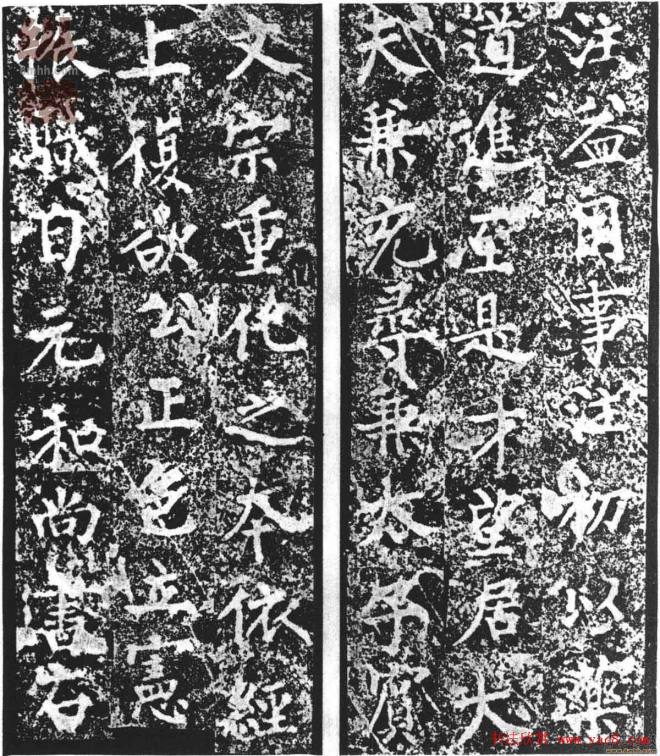 注益用事注初以藥
道進至是才望居大
夫兼充尋兼太子賓
文宗重他之本依經
上復欲公正色立憲
大職自元和尚書右
書法欣賞 www.yac8.com